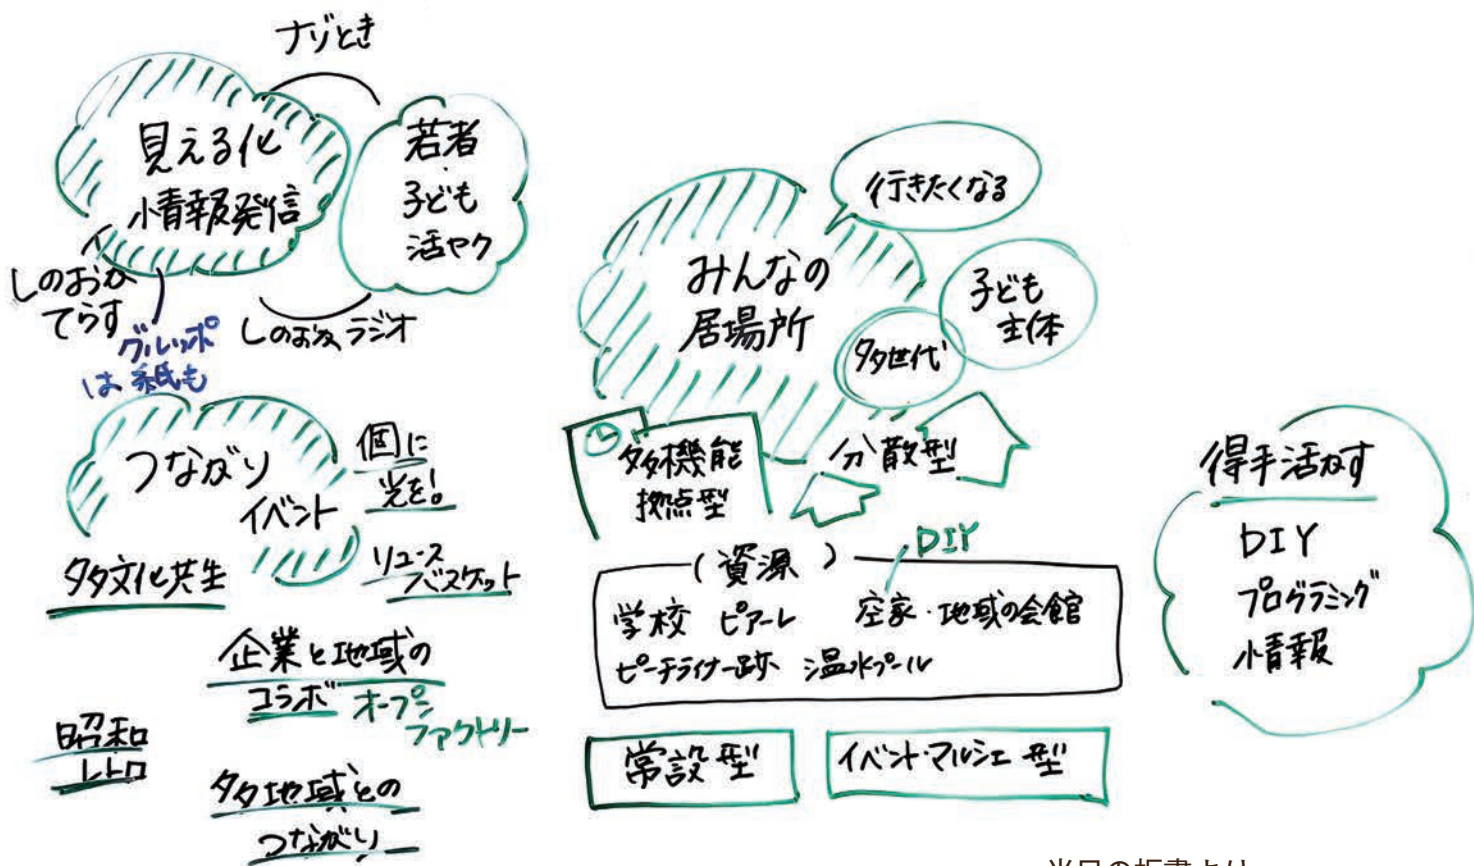 ナゾとき
見える化
情報発信
若者
・
子ども
活ヤク
しのおか
てらす
グルッポ
は紙も
しのおかラジオ
つながり
イベント
個に
光を!
多文化共生
リユース
バスケット
企業と地域の
コラボ
オープン
ファクトリー
昭和
レトロ
多地域との
つながり
みんなの
居場所
行きたくなる
子ども
主体
多世代
多機能
拠点型
分散型
(資源)
DIY
学校 ピアーレ 空家・地域の会館
ピーチライナー跡 温水プール
常設型
イベント・マルシェ型
得手活かす
DIY
プログラミング
情報